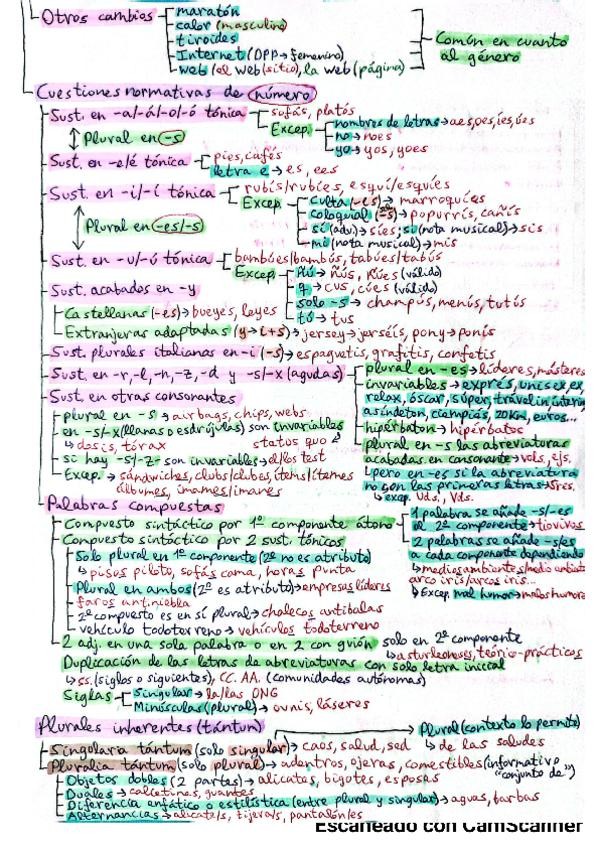 Otros cambios
maratón
calor (masculino)
tiroides
Internet (DPP → femenino)
web (el web (sitio), la web (página)
Común en cuanto
al género
Cuestiones normativas de número
Sust. en -a/-á/-o/-ó tónica
sofás, platós
Excep.
nombres de letras → aes, oes, íes, úes
no → noes
yo → yos, yoes
↕ Plural en -s
Sust. en -e/é tónica
pies, cafés
letra e → es, ees
Sust. en -i/-í tónica
rubís/rubíes, esquí/esquíes
Excep
culta (-es) → marroquíes
coloquial (-s) → popurrís, cañís
sí (adv.) → síes; si (nota musical) → sis
mi (nota musical) → mis
Plural en -es/-s
Sust. en -u/-ú tónica
bambúes/bambús, tabúes/tabús
Excep
ñú → ñús, ñúes (válido)
q → cus, cúes (válido)
solo -s → champús, menús, tutús
tú → tus
Sust. acabados en -y
Castellanas (-es) → bueyes, leyes
Extranjeras adaptadas (y → i+s) → jersey → jerséis, pony → ponis
Sust. plurales italianas en -i (-s) → espaguetis, grafitis, confetis
Sust. en -r, -l, -n, -z, -d y -s/-x (agudas)
plural en -es → líderes, másteres
invariables → exprés, unisex, ex,
relax, óscar, súper, travelín, ínterin,
asíndeton, ciempiés, 20km, euros...
hipérbaton → hipérbatos
plural en -s las abreviaturas
acabadas en consonante → vols., ejs.
pero en -es si la abreviatura
no son las primeras letras → Sres.
excep. Uds., Vds.
Sust. en otras consonantes
plural en -s → airbags, chips, webs
en -s/-x (llanas o esdrújulas) son invariables
dosis, tórax
status quo
si hay -s/-z- son invariables → el/los test
Excep. → sándwiches, clubs/clubes, ítems/ítemes
álbumes, imames/imanes
Palabras compuestas
Compuesto sintáctico por 1er componente átono
1 palabra se añade -s/-es
al 2º componente → tiovivos
2 palabras se añade -s/es
a cada componente dependiendo
medios ambientes/medio ambiente
arco iris/arcos iris...
Excep mal humor → malos humores
Compuesto sintáctico por 2 sust. tónicos
Solo plural en 1er componente (2º no es atributo)
pisos piloto, sofás cama, horas punta
Plural en ambos (2º es atributo) → empresas líderes
faros antiniebla
2º compuesto es en sí plural → chalecos antibalas
vehículo todoterreno → vehículos todoterreno
2 adj. en una sola palabra o en 2 con guión solo en 2º componente
asturleoneses, teórico-prácticos
Duplicación de las letras de abreviaturas con solo letra inicial
ss. (siglos o siguientes), CC. AA. (comunidades autónomas)
Siglas
Singular → la/las ONG
Minúsculas (plural) → ovnis, láseres
Plurales inherentes (tántum)
Plural (contexto lo permite)
de las saludes
Singularia tántum (solo singular) → caos, salud, sed
Pluralia tántum (solo plural) → adentros, ojeras, comestibles (informativo
"conjunto de")
Objetos dobles (2 partes) → alicates, bigotes, esposas
Duales → calcetines, guantes
Diferencia enfática o estilística (entre plural y singular) → aguas, barbas
Alternancias → alicate/s, tijera/s, pantalón/es
Escaneado con CamScanner